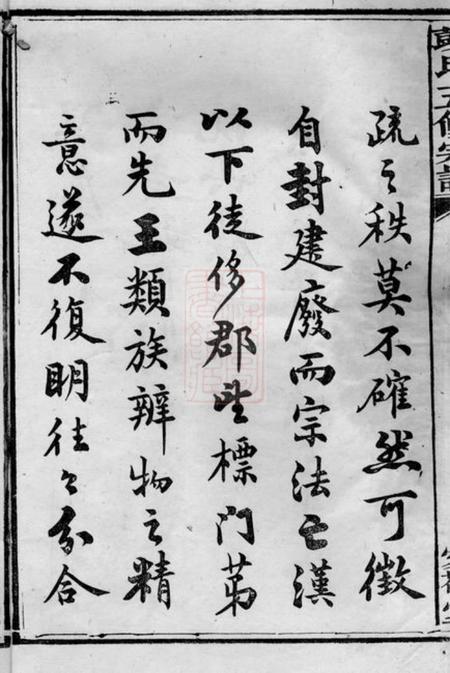 彭氏五修宗譜
疏之秩莫不確然可徵
自封建廢而宗法亡漢
以下徒侈郡望標門第
而先王類族辨物之精
意遂不復明往々分合